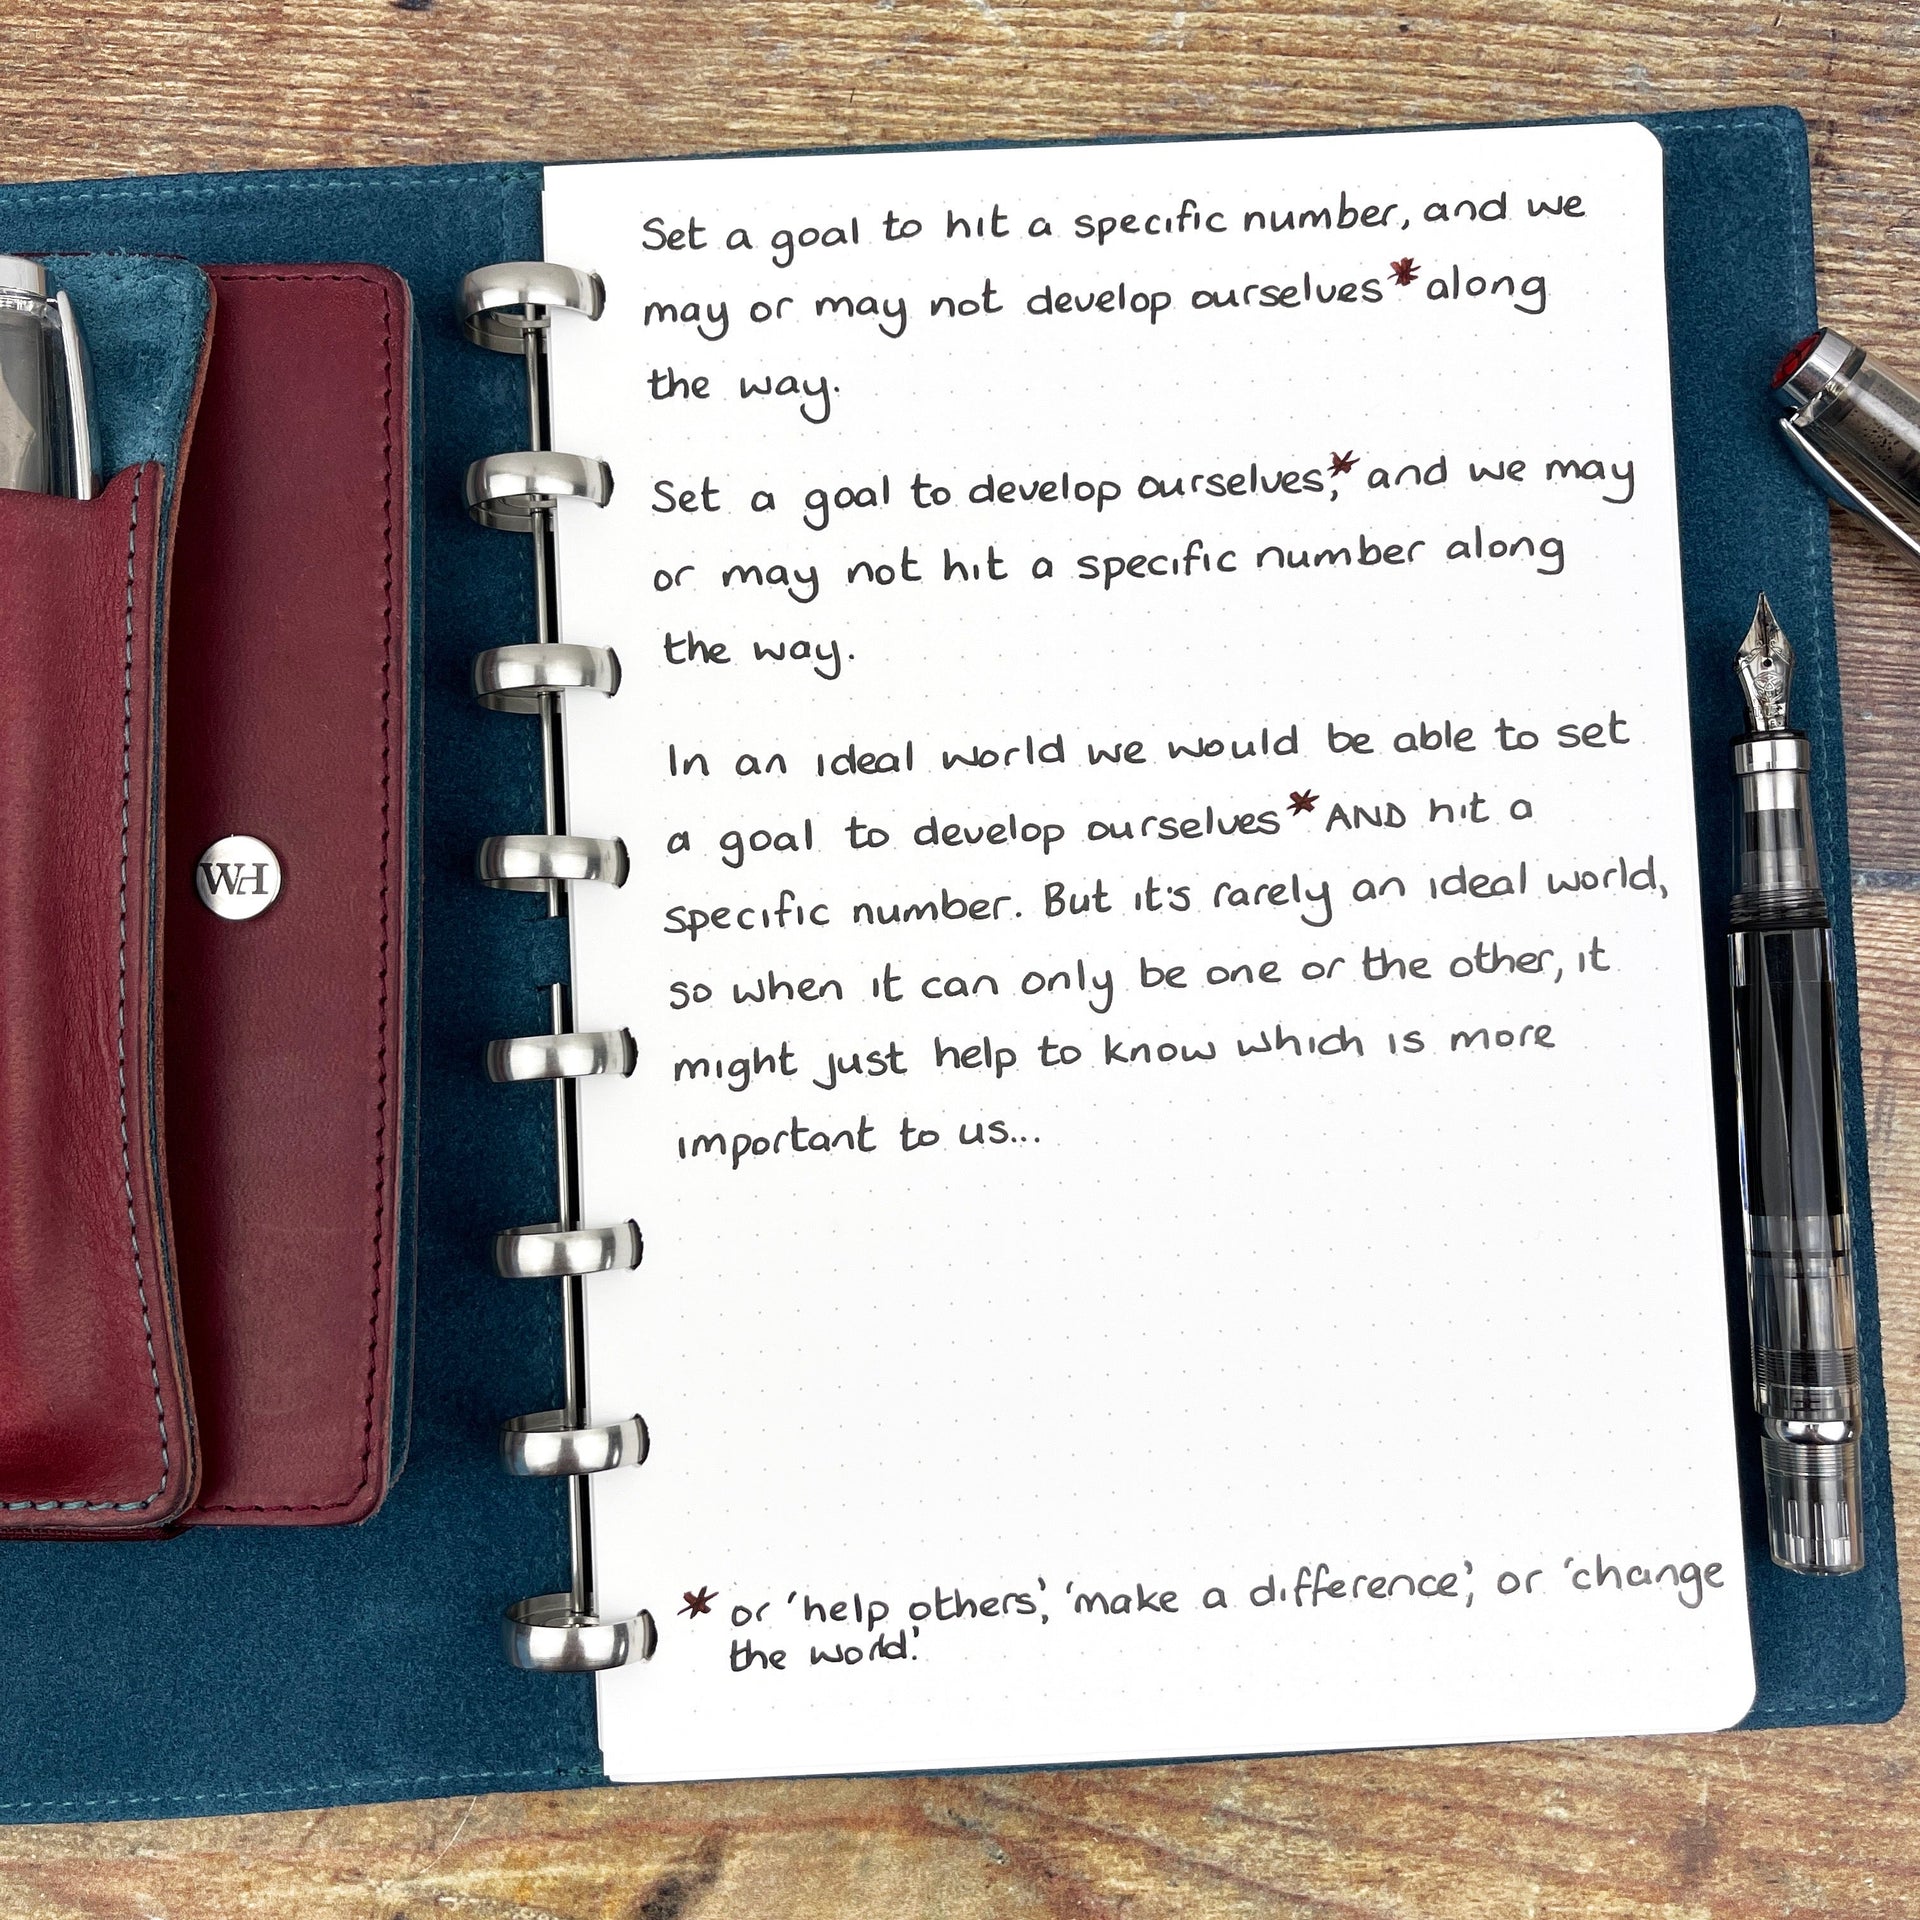 Set a goal to hit a specific number, and we
may or may not develop ourselves* along
the way.
Set a goal to develop ourselves,* and we may
or may not hit a specific number along
the way.
In an ideal world we would be able to set
a goal to develop ourselves* AND hit a
specific number. But it's rarely an ideal world,
so when it can only be one or the other, it
might just help to know which is more
important to us...
* or 'help others', 'make a difference', or 'change
the world'.
WH